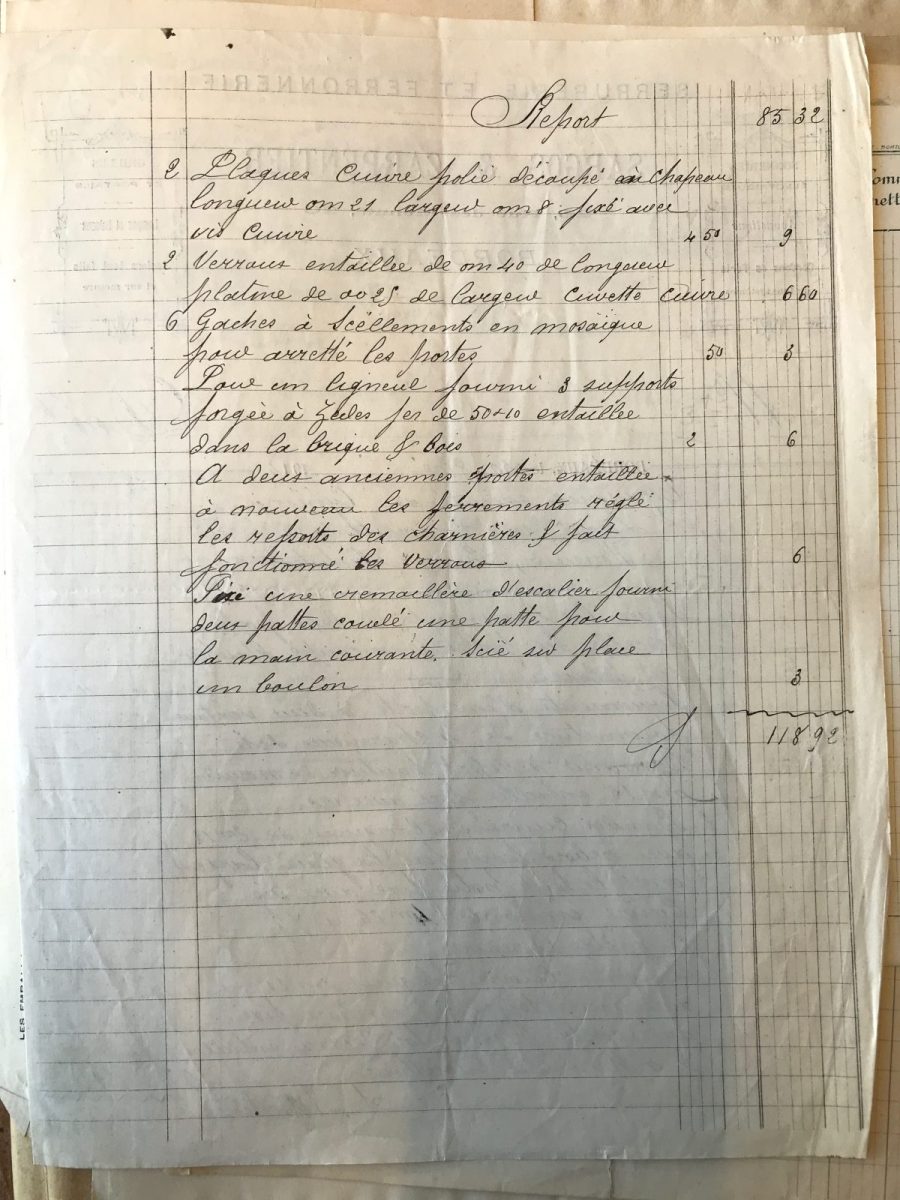 Report 85 32
2 Plaques Cuivre polie découpé en chapeau
longueur 0m21 largeur 0m8 fixé avec
vis Cuivre 4 50 9
2 Verrous entaillee de 0m40 de longueur
platine de 0025 de largeur cuvette cuivre 6 60
6 Gaches à Scèllements en mosaïque
pour arretté les portes 50 3
Pour un ligneul fourni 3 supports
forgée à Zedes fer de 50+10 entaillée
dans la brique & bois 2 6
A deux anciennes portes entaillée
à nouveau les ferrements réglé
les reports des charnières & fait
fonctionné les verrous 6
Fixé une cremaillère d'escalier fourni
deux pattes coudé une patte pour
la main courante. Scié sur place
un boulon 3
118 92
SERRURERIE ET FERRONNERIE
CHARPENTIER
LES EMBAL
Comm
nett